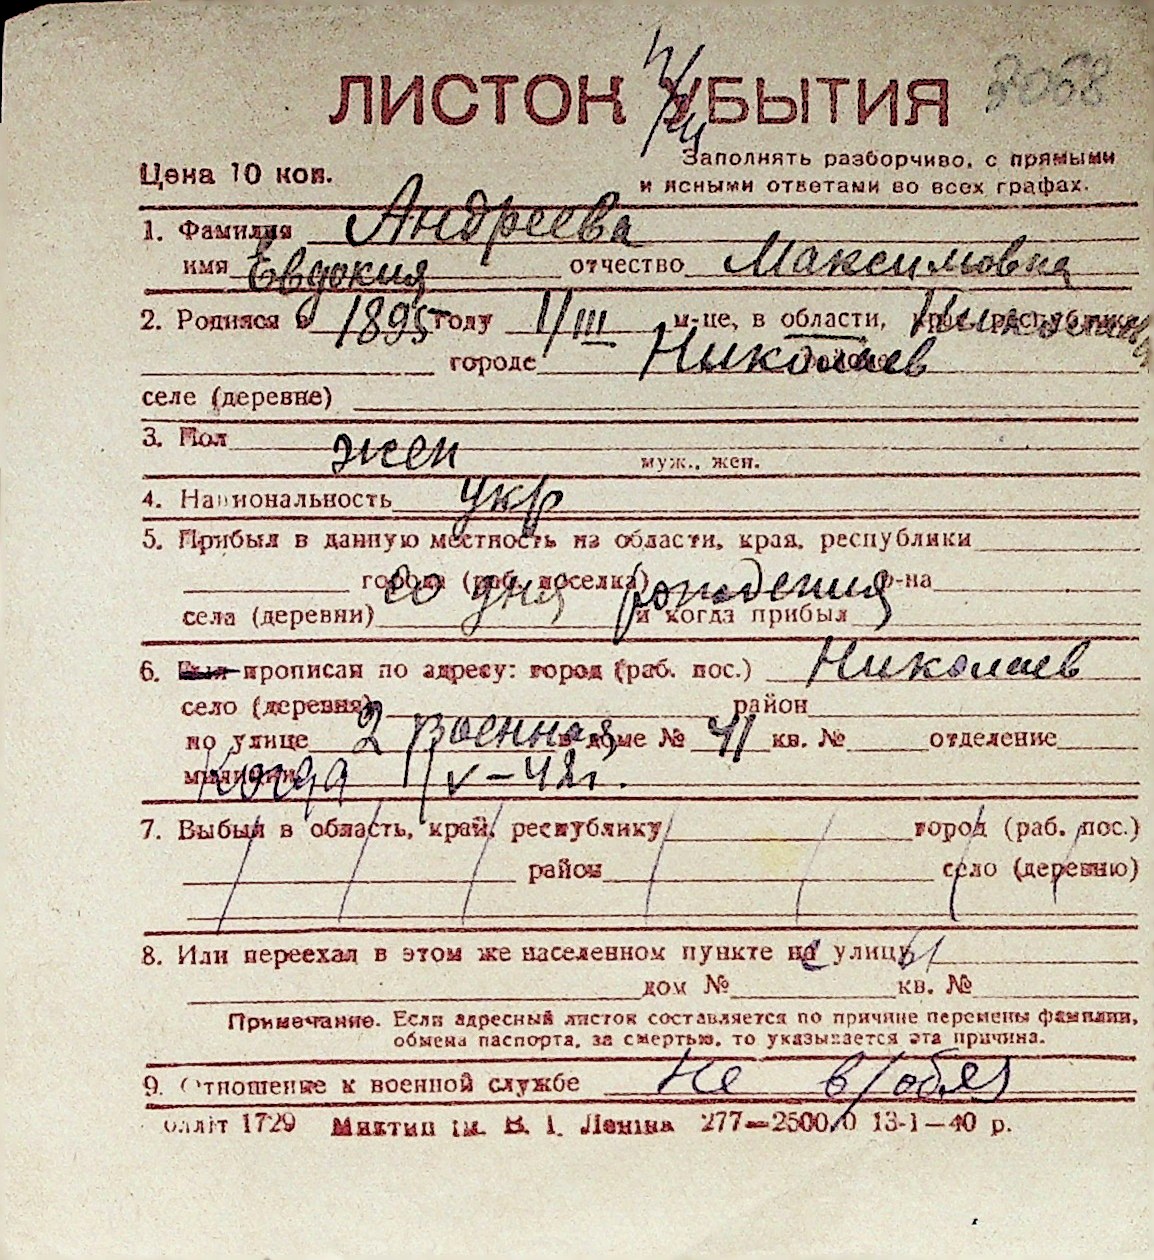 ЛИСТОК УБЫТИЯ 2068
Цена 10 коп.
Заполнять разборчиво, с прямыми
и ясными ответами во всех графах.
1. Фамилия Андреева
имя Евдокия отчество Максимовна
2. Родился в 1895 году 1/III м-це, в области,
городе Николаев
селе (деревне)
3. Пол жен
муж., жен.
4. Национальность укр
5. Прибыл в данную местность из области, края, республики
города (раб. поселка) со дня рождения р-на
села (деревни) и когда прибыл
6. Был прописан по адресу: город (раб. пос.) Николаев
село (деревня) район
по улице 2 Военная в доме № 41 кв. № отделение
милиции Когда V-42г.
7. Выбыл в область, край, республику город (раб. пос.)
район село (деревню)
8. Или переехал в этом же населенном пункте на улицу
дом № кв. №
Примечание. Если адресный листок составляется по причине перемены фамилии,
обмена паспорта, за смертью, то указывается эта причина.
9. Отношение к военной службе не в/обяз
1729 им. В. І. Леніна 277—25000 13-1—40 р.